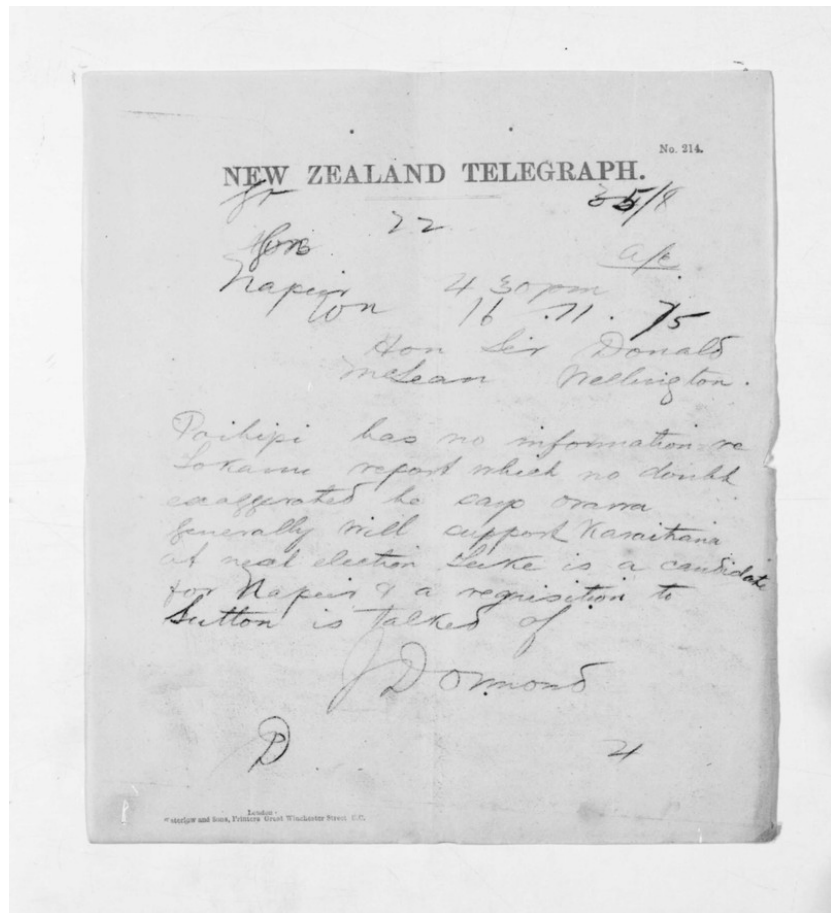 No. 214.
NEW ZEALAND TELEGRAPH.
22
Napier 4 30 pm
16 . 11 . 75
Hon Sir Donald
McLean Wellington.
Paihipi has no information re
report which no doubt
exaggerated he says
generally will support Karaitiana
at next election is a candidate
for Napier & a requisition to
Sutton is talked of
J D Ormond
D 4
London -
Waterlow and Sons, Printers Great Winchester Street E.C.